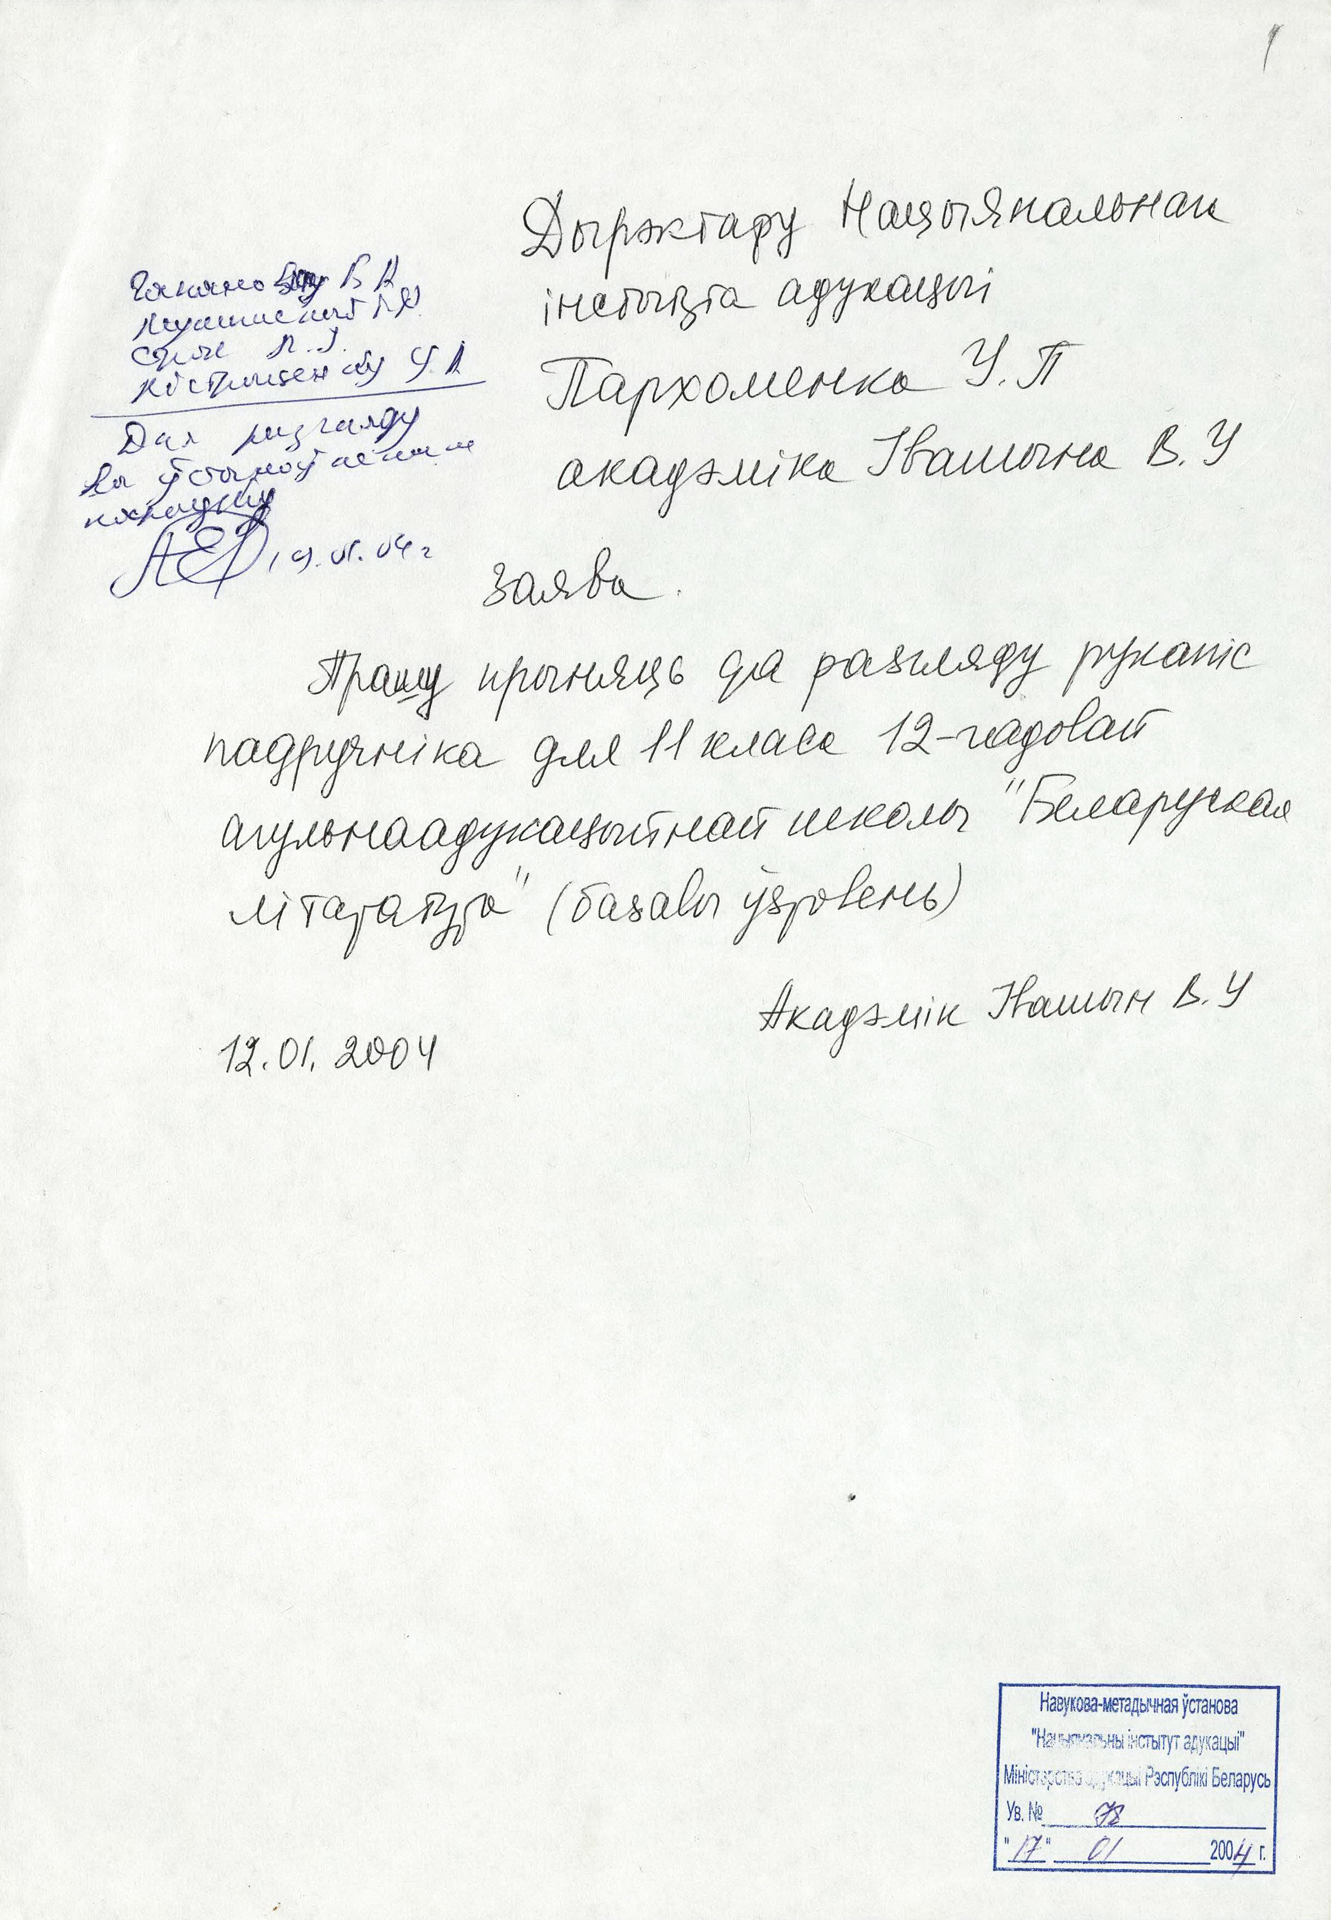 Дырэктару Нацыянальнага
інстытута адукацыі
Пархоменка У.П
акадэміка Івашына В.У
заява.
Прашу прыняць да разгляду рукапіс
падручніка для 11 класа 12-гадовай
агульнаадукацыйнай школы "Беларуская
літаратура" (базавы ўзровень)
Акадэмік Івашын В.У
12.01.2004
В А
У. А
Для разгляду
ва ўстаноўленым
парадку
19.01.04 г
Навукова-метадычная ўстанова
"Нацыянальны інстытут адукацыі"
Міністэрства адукацыі Рэспублікі Беларусь
Ув. № 78
"17" 01 2004 г.